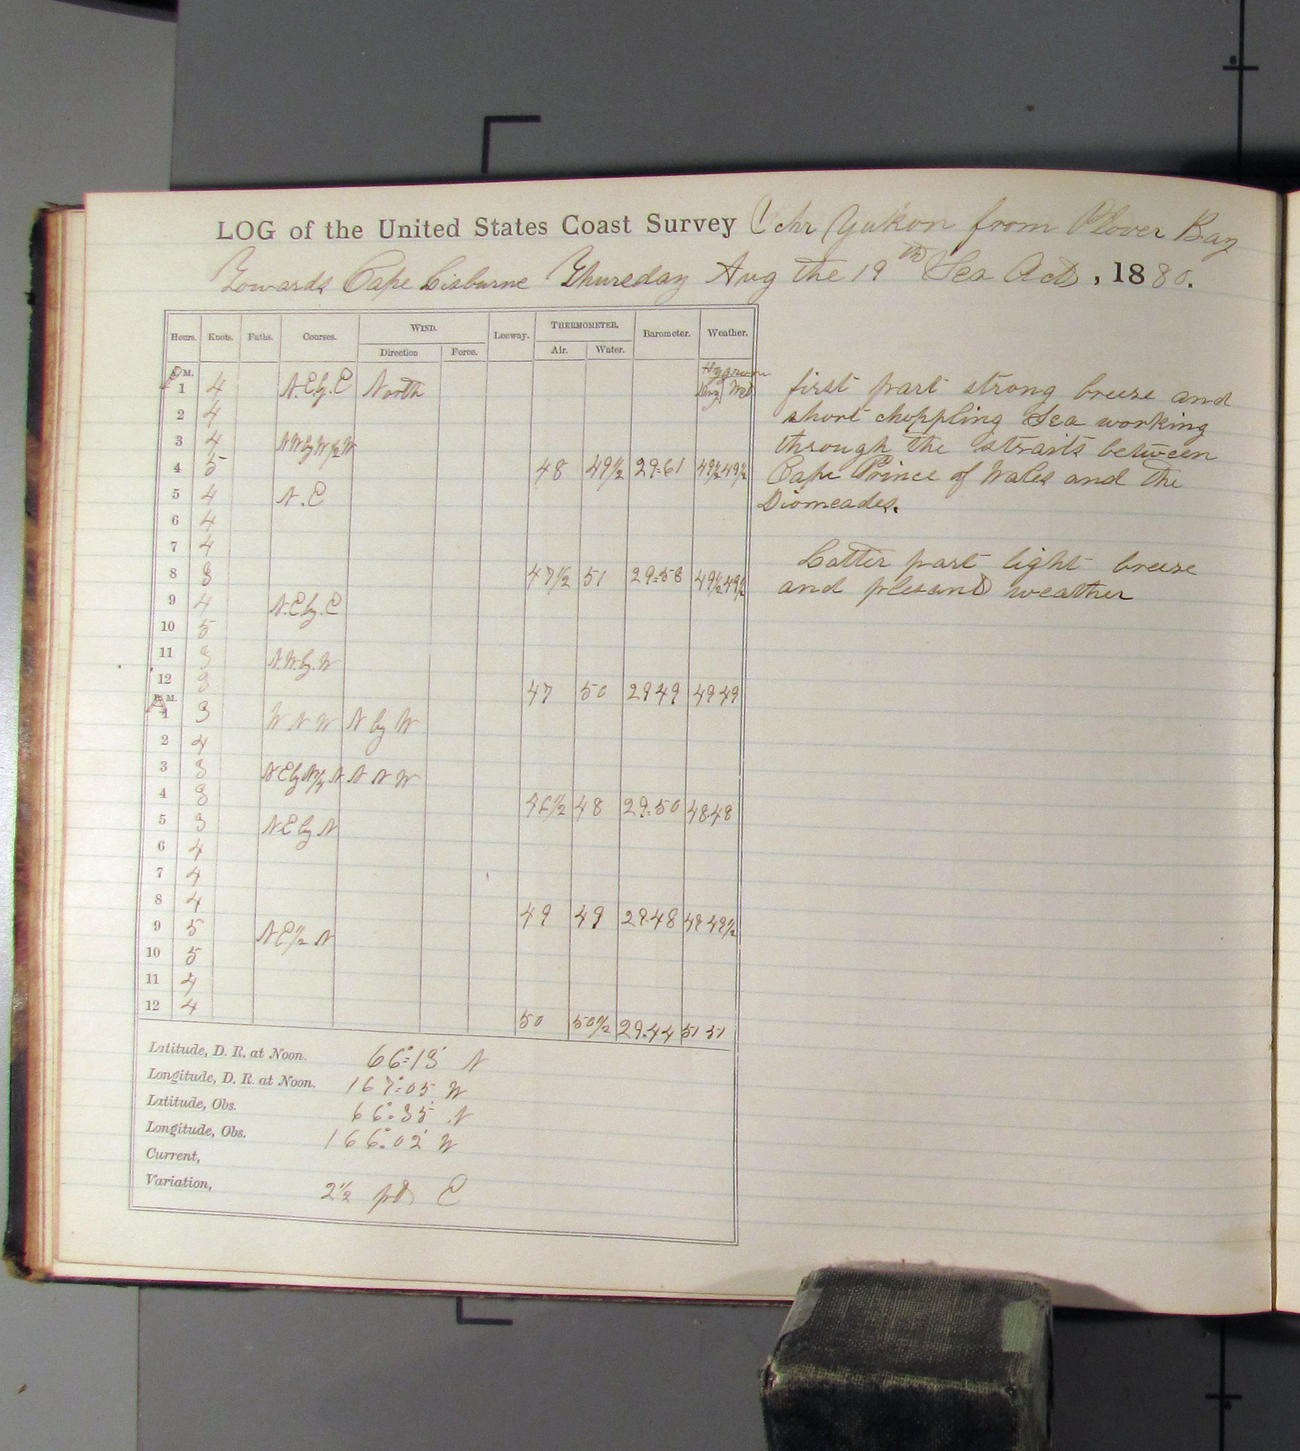 LOG of the United States Coast Survey Schr Yukon from Plover Bay
Towards Cape Lisburne Thuresday Aug the 19th Sea Act, 1880.
Hours. Knots. Faths. Courses. WIND. Leeway. THERMOMETER. Barometer. Weather.
Direction Force. Air. Water.
P.M.
1 4 N.E by. E North Dry Wet
2 4
3 4 N W by W ½ W
4 5 48 49½ 29.61 49½ 49½
5 4 N.E
6 4
7 4
8 3 47½ 51 29.58 49½ 49½
9 4 N.E by. E
10 5
11 3 N.W. by. W
12 3 47 50 29 49 49 49
A.M.
1 3 W N W N by W
2 4
3 3 N E by N ½ N N N W
4 3 46½ 48 29.50 48 48
5 3 N E by N
6 4
7 4
8 4 49 49 29.48 49 49½
9 5 N E ½ N
10 5
11 4
12 4 50 50½ 29.44 51 51
Latitude, D. R. at Noon. 66°:13' N
Longitude, D. R. at Noon. 167°:05 W
Latitude, Obs. 66°:35' N
Longitude, Obs. 166°:02' W
Current,
Variation, 2½ pt E
first part strong breeze and
short choppling Sea working
through the straits between
Cape Prince of Wales and the
Diomeades.
Latter part light breese
and plesand weather